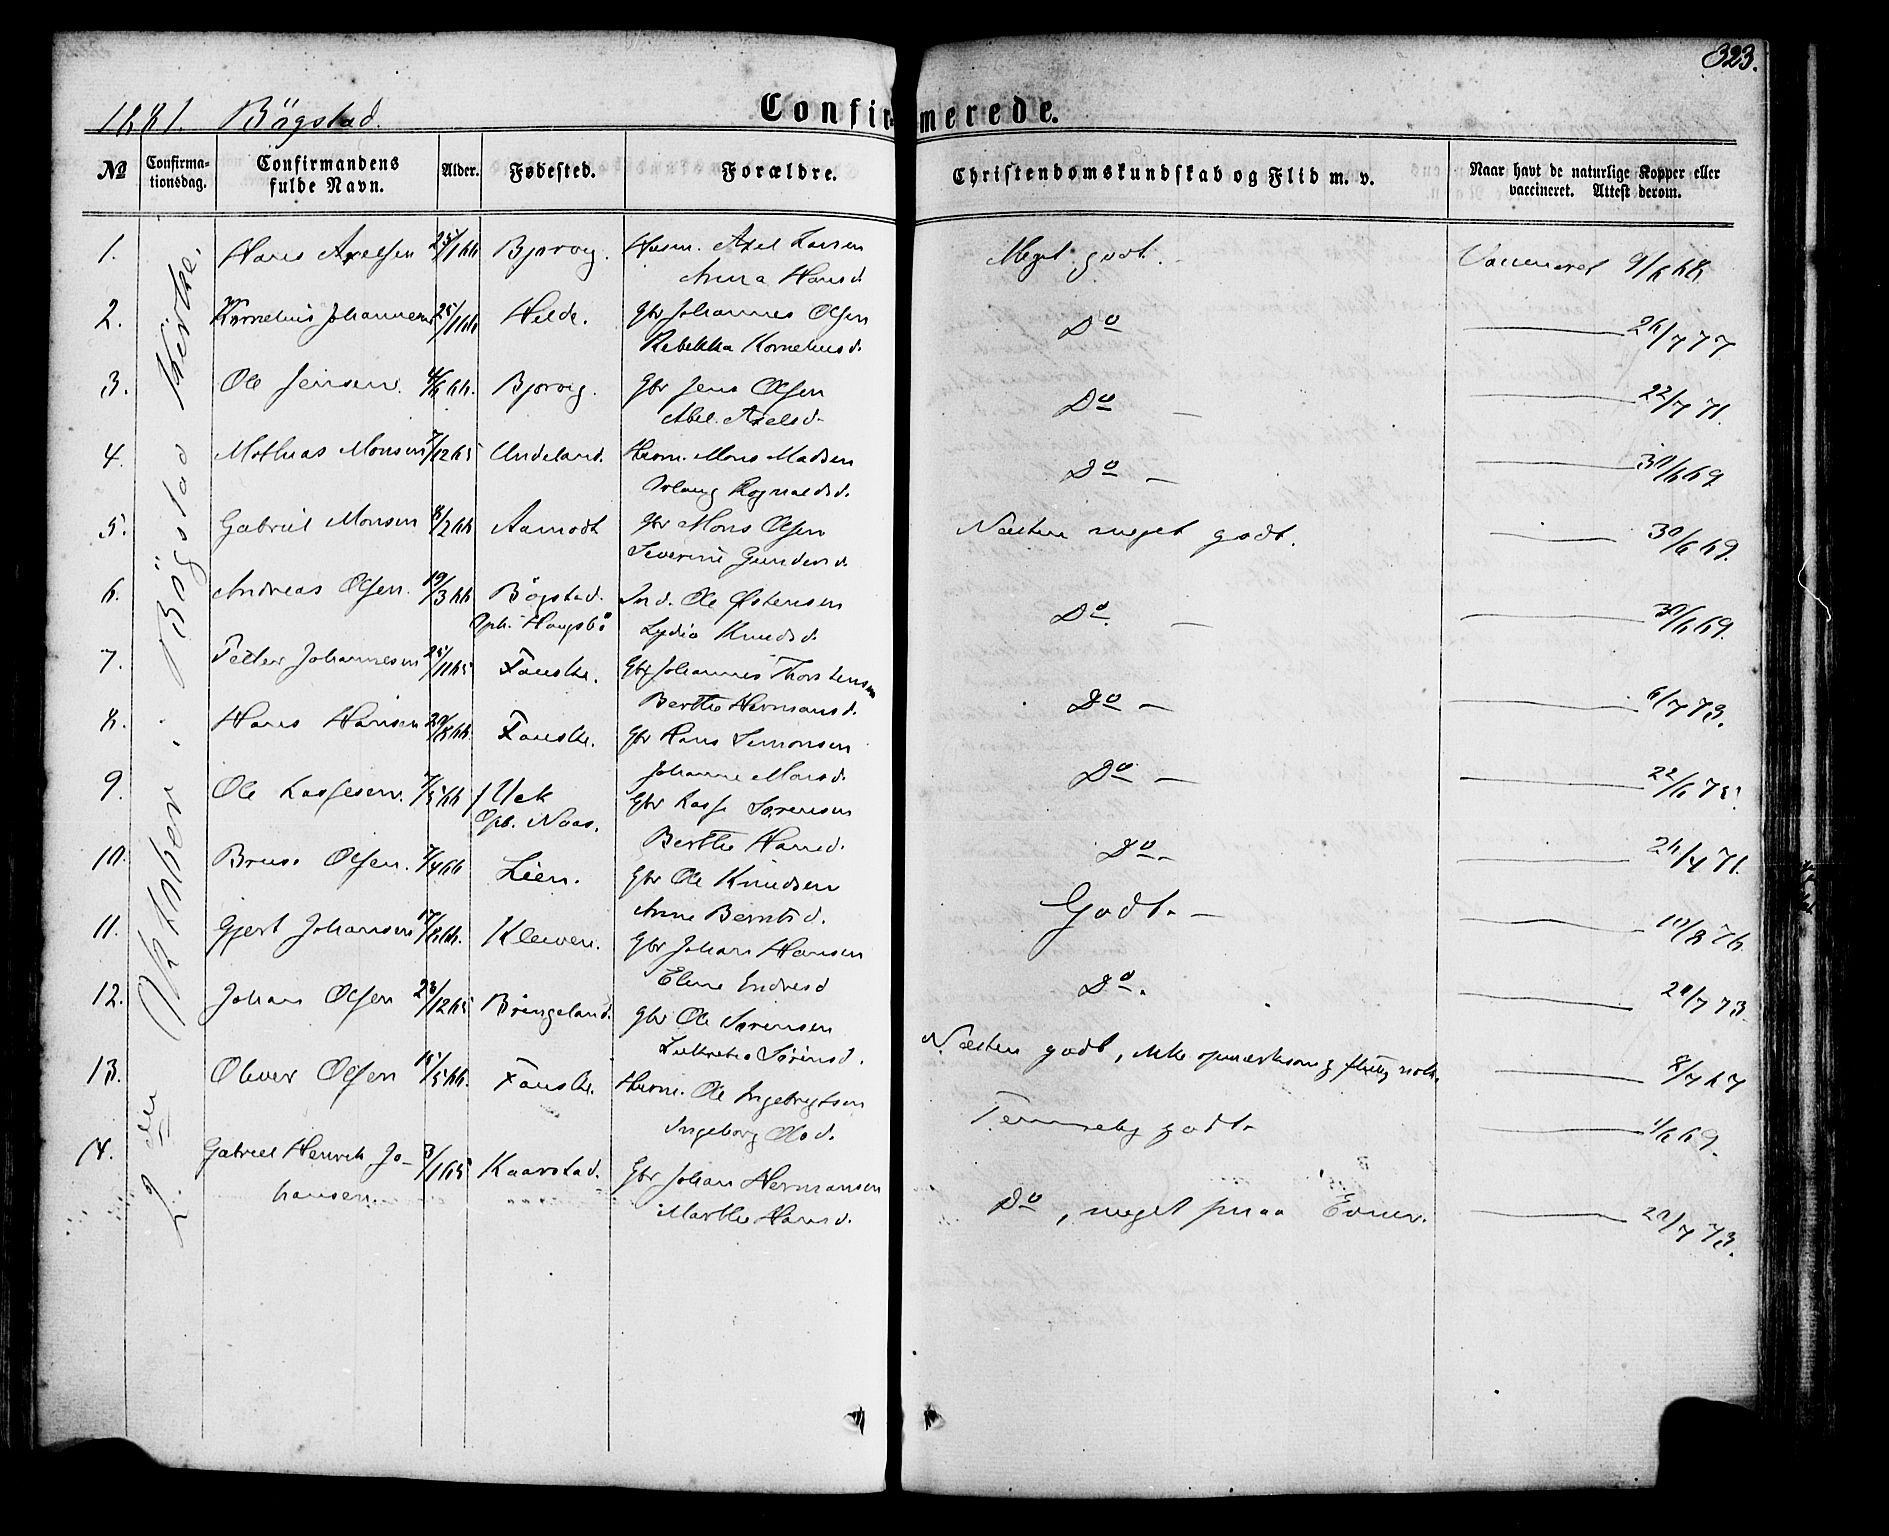 323.
1881. Bögstad.
Confirmerede.
№ Confirmationsdag. Confirmandens fulde Navn. Alder. Fødested. Forældre. Christendomskundskab og Flid m. v. Naar havt de naturlige Kopper eller vaccineret. Attest derom.
2den Oktober i Bögstad Kirke.
1. Hans Axelsen 25/1 66 Bjorvig. Husm. Axel Larsen Meget godt. Vaccineret 9/6 68
Anna Hansd
2. Kornelius Johannesen 25/1 66 Helde. Gbr Johannes Olsen Do 26/7 77
Rebekka Korneliusd.
3. Ole Jensen. 4/6 66. Bjorvig. Gbr Jens Olsen Do 22/7 71.
Abel Axelsd.
4. Mathias Monsen 7/12 65 Undeland. Husm. Mons Madsen Do 30/6 69
Ragnaldsd.
5. Gabriel Monsen 8/2 66 Aamodt Gbr Mons Olsen Næsten meget godt. 30/6 69.
Severine Gundersd.
6. Andreas Olsen. 19/3 66 Bögstad. Ind. Ole Østensen Do. 30/6 69.
Oph. Haugsbö Lydia Knudsd.
7. Petter Johannesen 25/11 65 Fauske. Gbr Johannes Thorstensen Do 6/7 73.
Berthe Hermansd.
8. Hans Hansen 20/8 66. Fauske. Gbr Hans Simonsen Do 22/6 75.
Johanne Monsd.
9. Ole Lassesen. 7/5 66 f Uek Gbr Lasse Sørensen Do 26/7 71.
Oph. Naas. Berthe Hansd.
10. Brune Olsen. 7/4 66 Lien. Gbr Ole Knudsen Godt. 10/8 76.
Anne Berntsd.
11. Gjert Johansen 17/8 66. Kleiven. Gbr Johan Hansen Do. 20/7 73.
Eline Endresd
12. Johan Olsen 23/12 65 Bringeland. Gbr Ole Sørensen Næsten godt, ikke opmærksom g flittig nok. 8/7 67
Lukretia Sörensd.
13. Oliver Olsen 15/5 66. Fauske. Husm. Ole Ingebrigtsen Temmelig godt. 1/6 69.
Ingeborg Olsd.
14. Gabriel Henrik Jo- 3/1 65 Kaarstad. Gbr Johan Hermansen Do, meget smaa Evner. 20/7 73.
hansen. Marthe Hansd.